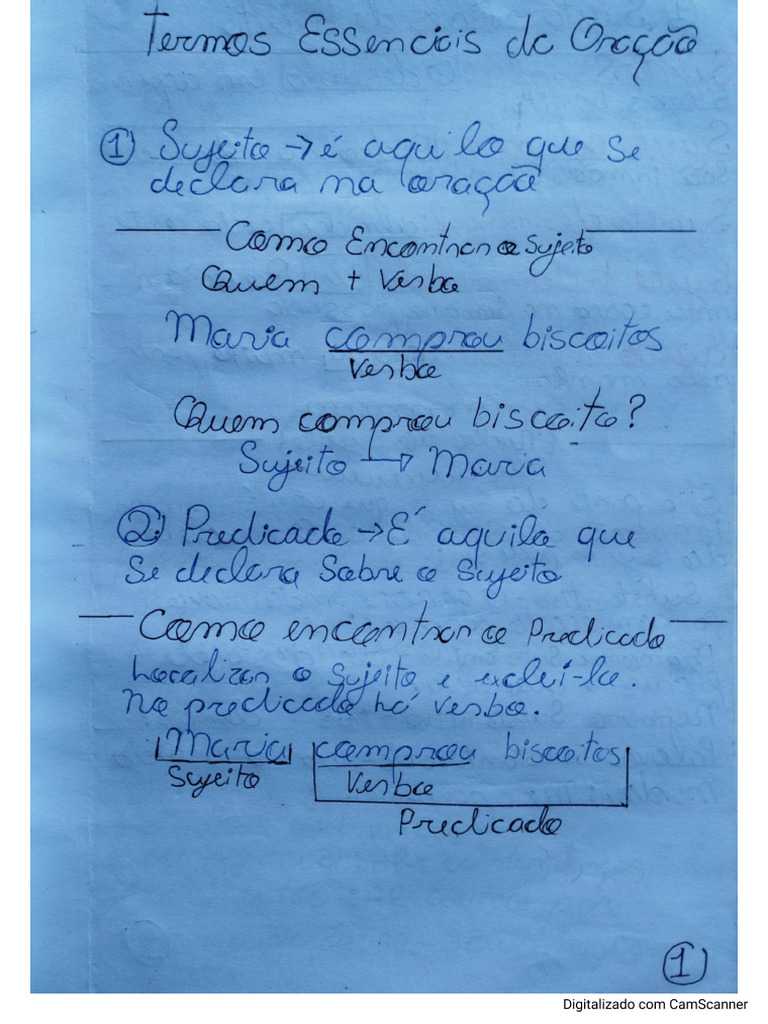 Termos Essenciais da Oração
① Sujeito → é aquilo que se
declara na oração
Como Encontrar o Sujeito
Quem + Verbo
Maria comprou biscoitos
Verbo
Quem comprou biscoito?
Sujeito → Maria
②. Predicado → É aquilo que
se declara sobre o sujeito
Como encontrar o Predicado
Localizar o sujeito e excluí-lo.
No predicado há verbo.
Maria comprou biscoitos
Sujeito Verbo
Predicado
①
Digitalizado com CamScanner